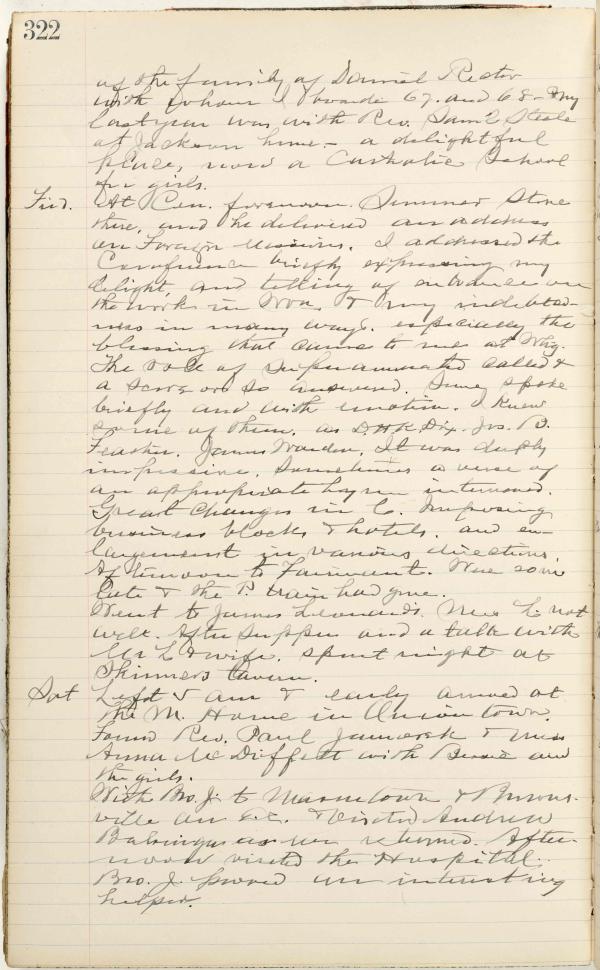 322
of the family of Daniel Rector
with whom I boarded 67. and 68 - & my
last year was with Rev. Sam'l Steele
at Jackson home - a delightful
place, now a Catholic School
for girls.
Frid. At Con. forenoon. Sumner Stone
there, and he delivered an address
on Foreign Missions. I addressed the
Conference briefly expressing my
delight and telling of entrance on
the work in & my indebted-
ness in many ways. especially the
blessing that came to me at
The role of Superannuated called &
a score or so answered. Some spoke
briefly and with emotion. I knew
some of them, as Dix. Jos. B.
Feather. James Worden. It was deeply
impressive. Sometimes a verse of
an appropriate hymn intervened.
Great changes in C. Imposing
business blocks & hotels. and en-
largement in various directions.
Afternoon to Fairmont. Was some
late & the P. train had gone.
Went to James Leonards. Mrs L. not
well. After supper and a talk with
Mr L & wife. spent night at
Skinners tavern.
Sat Left 5 am & early arrived at
the M. Home in Uniontown.
Found Rev. Paul & Miss
Anna McDiffett with Bessie and
the girls.
With Bro. J. to Masontown & Browns-
ville on s.c. & visited Andrew
as we returned. After-
noon visited the Hospital.
Bro. J. proved an interesting
helper.